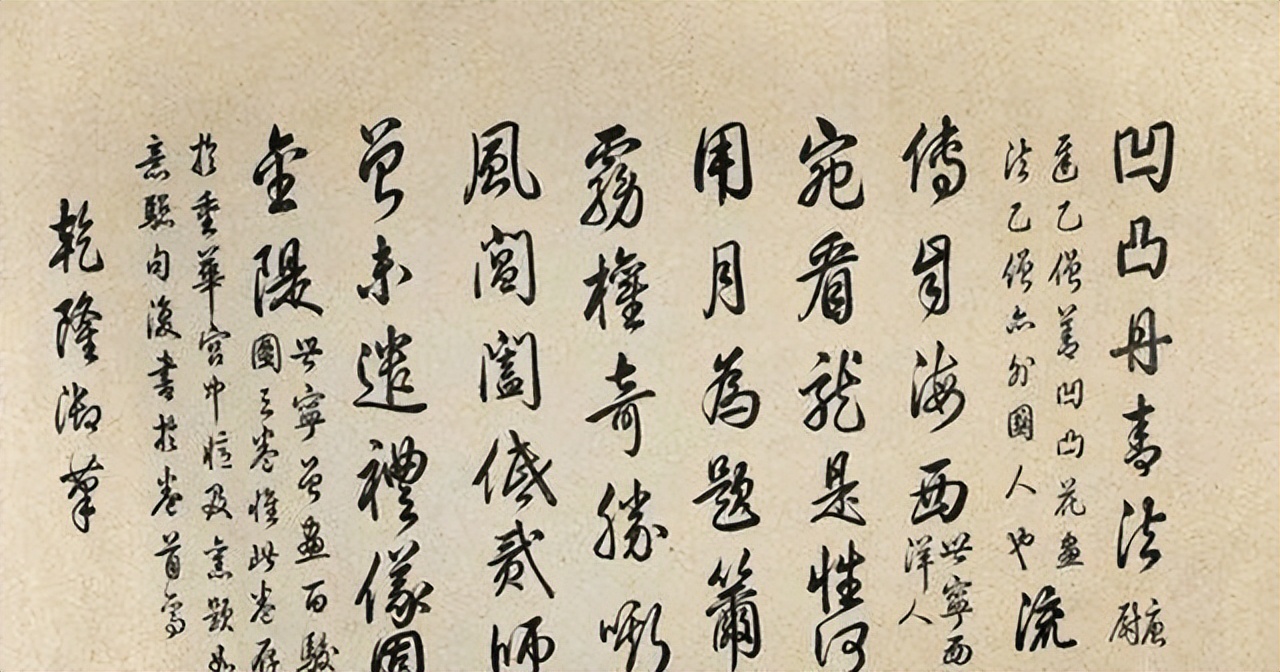 凹凸丹青法唐尉
遲乙僧善凹凸花畫
法乙僧亦外國人也
流
傳自海西
世寧西
洋人
宛看龍是性何
用月為題籋
霧權奇勝嘶
風閶闔低貳師
曾未遣禮儀固
金隄
世寧曾畫百駿
圖三卷惟此卷存
於重華宮中及題如
句復書於卷首焉
乾隆御筆